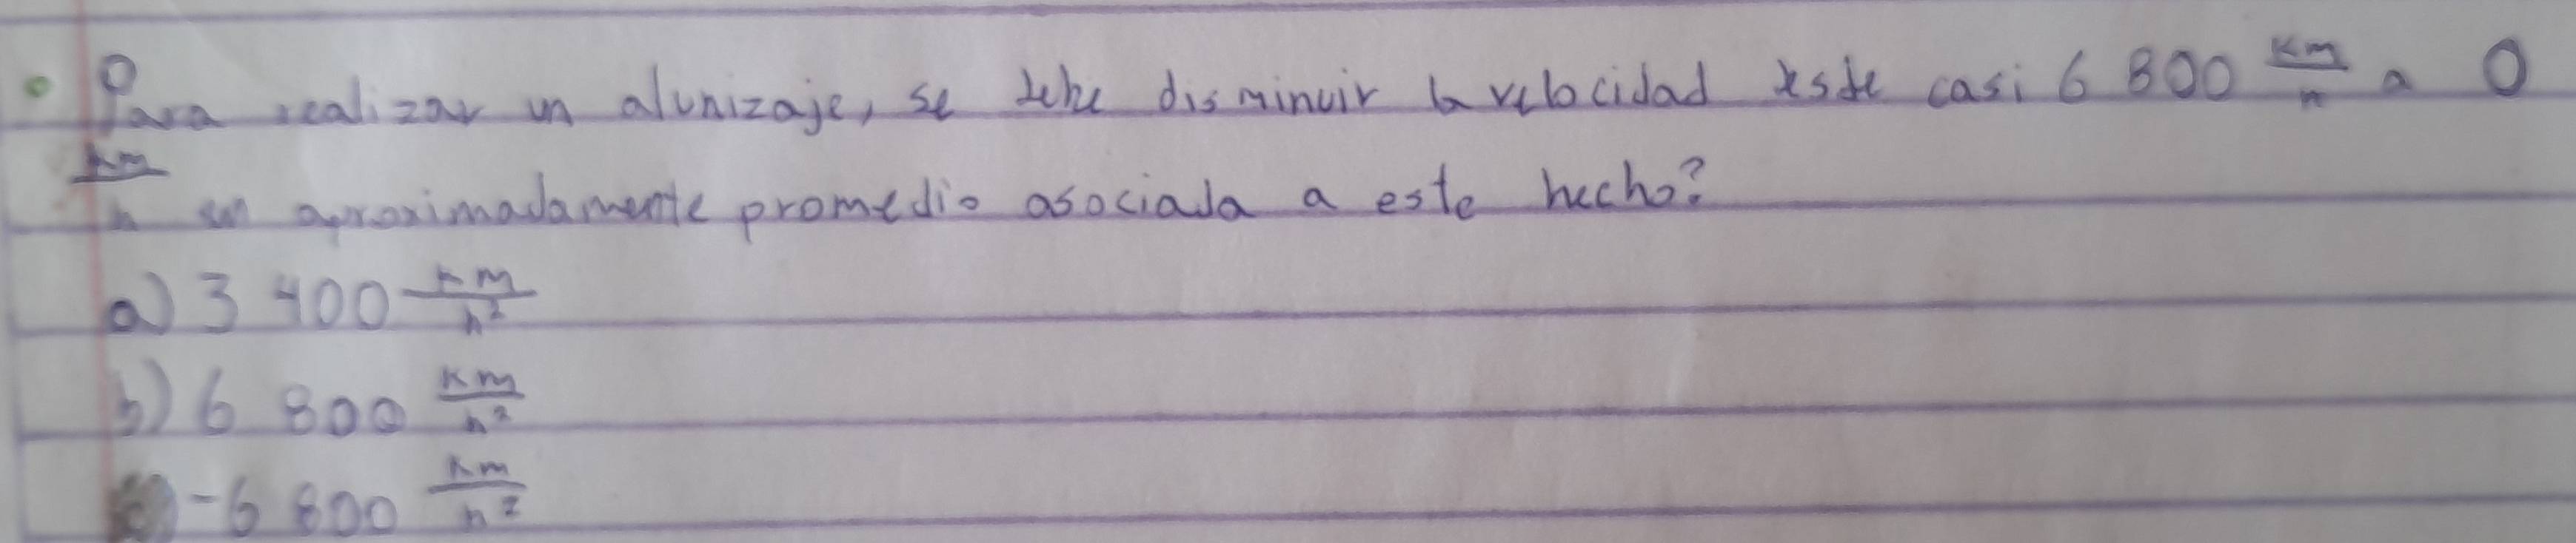 Para realizar un alunizaje, se debe disminuir la velocidad desde casi 6 800 km/h a 0
km/h en aproximadamente promedio asociada a este hecho?
a) 3 400 km/h²
b) 6 800 km/h²
c) -6 800 km/h²